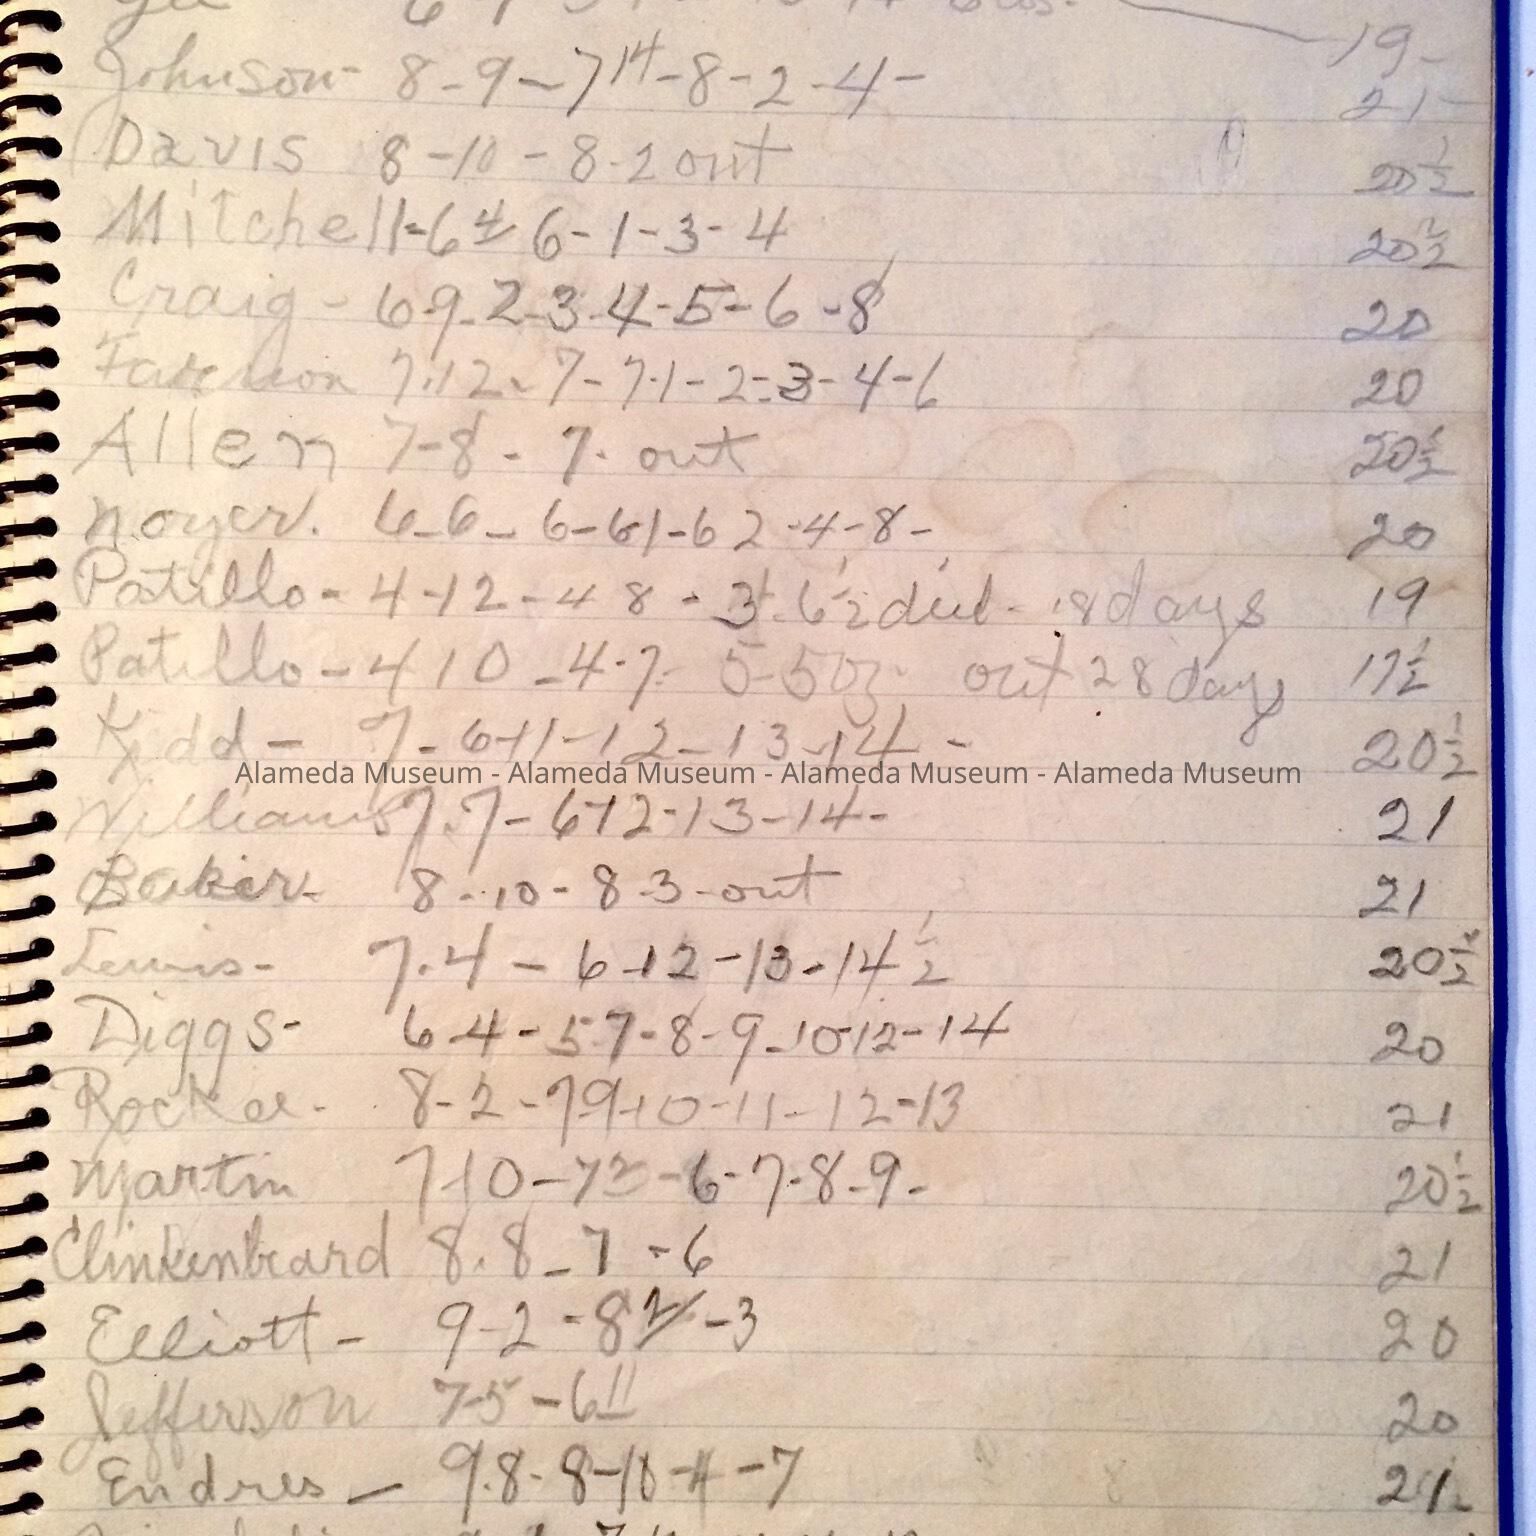 19-
Johnson- 8-9-7 14-8-2-4- 21-
Davis 8-10-8-2 out 20 1/2
Mitchell-6 4 6-1-3-4 20 1/2
Craig-6-9-2-3-4-5-6-8 20
7-12-7-7-1-2-3-4-6 20
Allen 7-8-7- out 20 1/2
Noyer. 6-6-6-61-62-4-8- 20
Patillo-4-12-48-3-6 1/2 died-18 days 19
Patillo-410-4-7- 5-5oz out 28 days 17 1/2
Kidd- 7-6-11-12-13-14- 20 1/2
Alameda Museum - Alameda Museum - Alameda Museum - Alameda Museum
Williams 7.7-6-12-13-14- 21
Baker- 8-10-8-3-out 21
Lewis- 7.4-6-12-13-14 1/2 20 1/2
Diggs- 6-4-5-7-8-9-10-12-14 20
8-2-79-10-11-12-13 21
Martin 7-10-73-6-7-8-9- 20 1/2
Clinkenbeard 8.8-7-6 21
Elliott- 9-2-8 2-3 20
Jefferson 7-5-611 20
Endres- 9.8-8-10-11-7 21